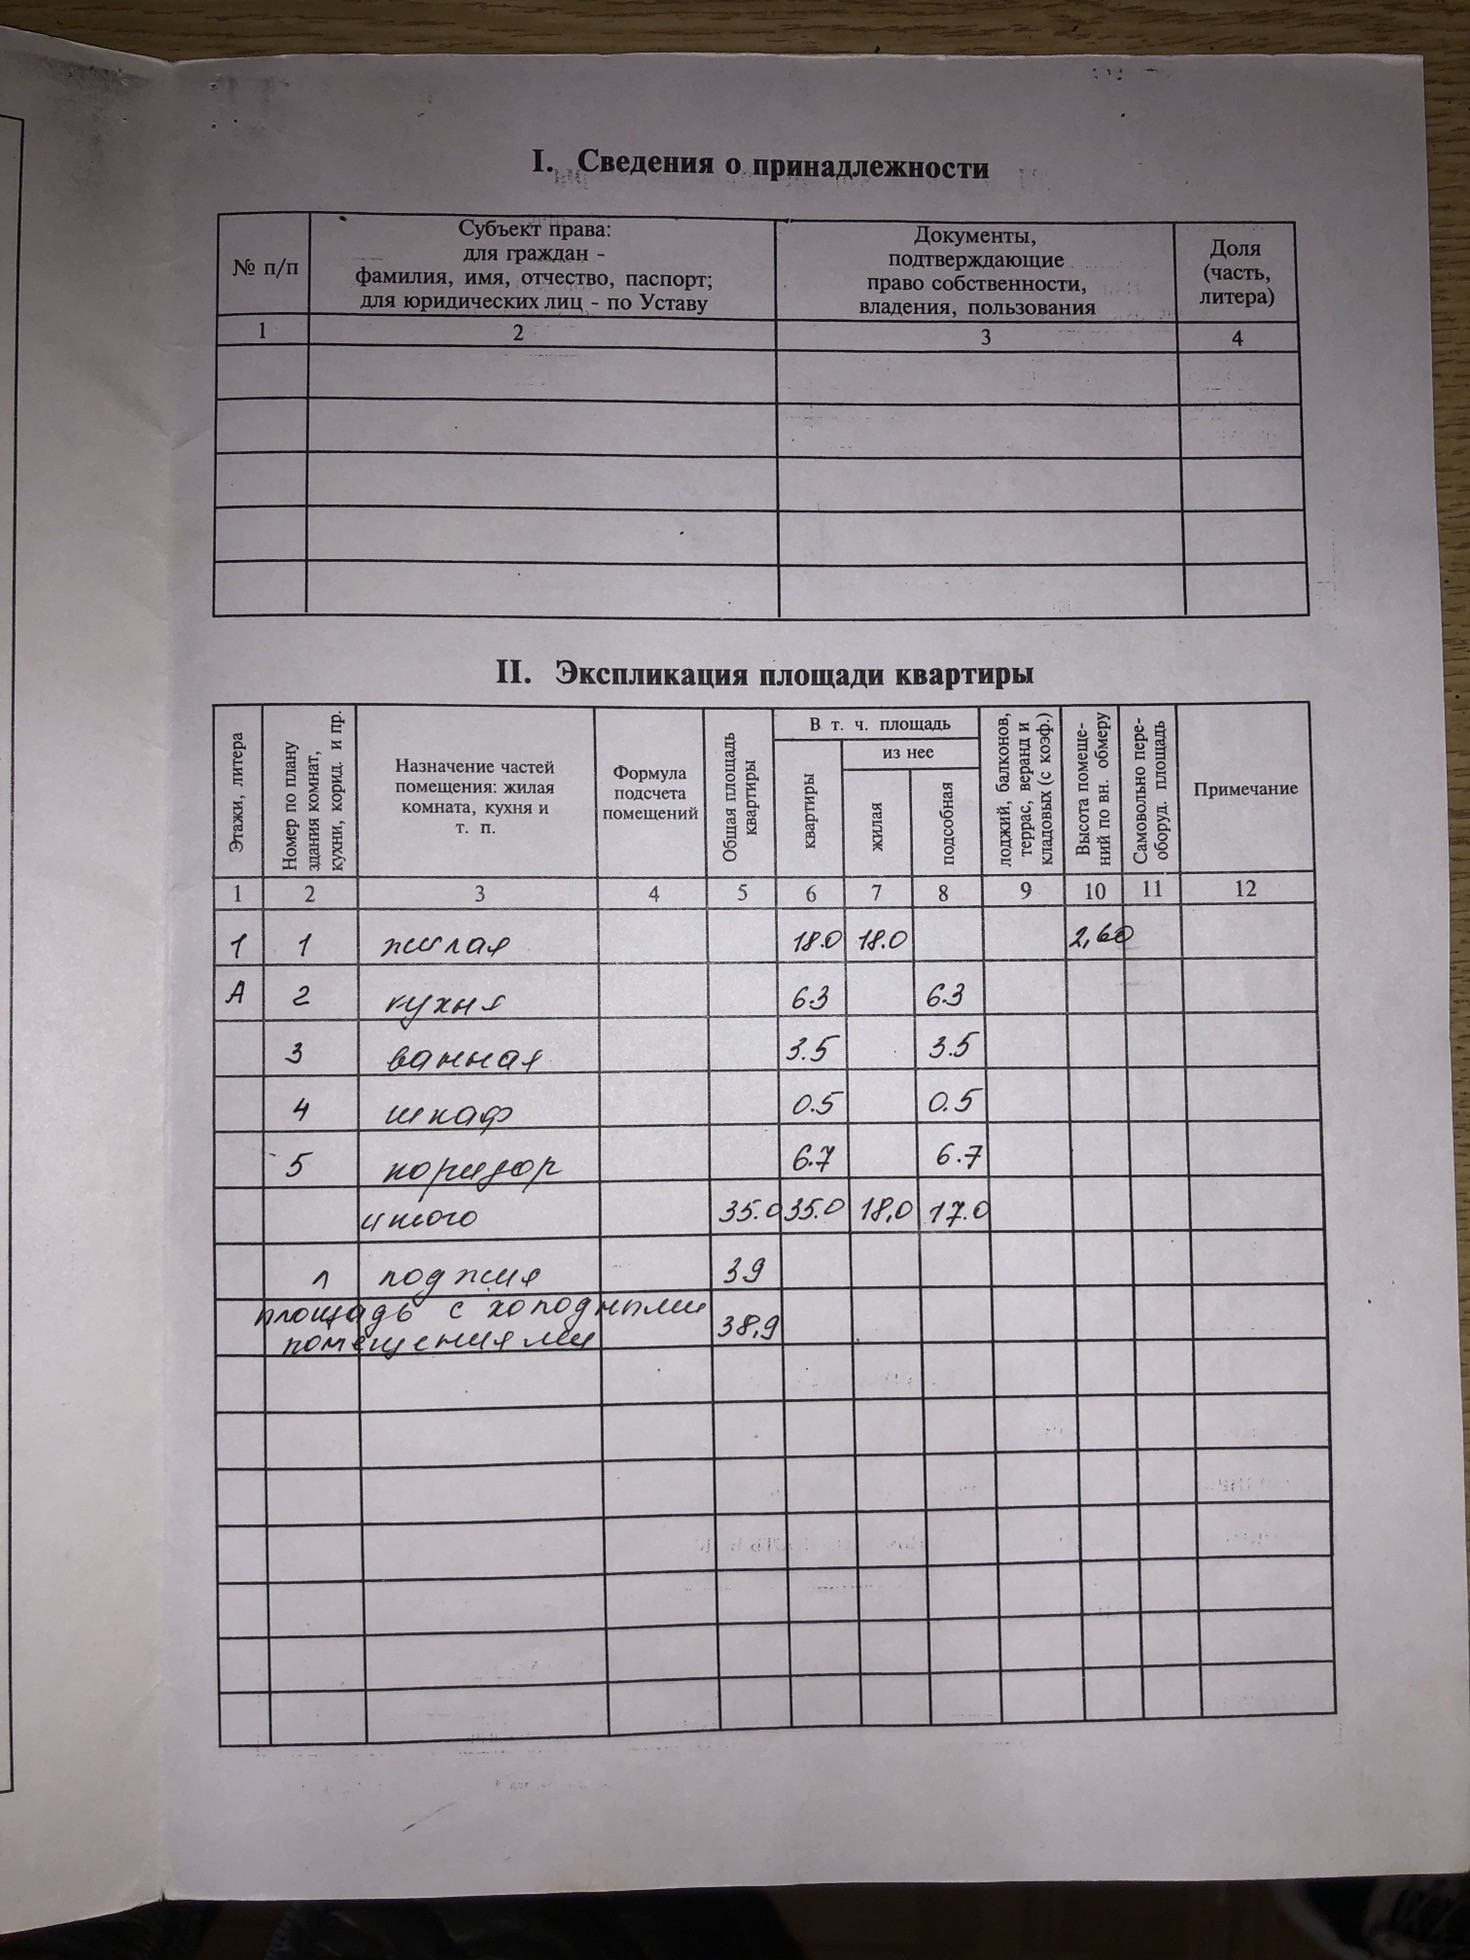 I. Сведения о принадлежности
№ п/п
Субъект права:
для граждан -
фамилия, имя, отчество, паспорт;
для юридических лиц - по Уставу
Документы,
подтверждающие
право собственности,
владения, пользования
Доля
(часть,
литера)
1 2 3 4
II. Экспликация площади квартиры
Этажи, литера
Номер по плану
здания комнат,
кухни, корид. и пр.
Назначение частей
помещения: жилая
комната, кухня и
т. п.
Формула
подсчета
помещений
Общая площадь
квартиры
В т. ч. площадь
квартиры
из нее
жилая
подсобная
лоджий, балконов,
террас, веранд и
кладовых (с коэф.)
Высота помеще-
ний по вн. обмеру
Самовольно пере-
оборуд. площадь
Примечание
1 2 3 4 5 6 7 8 9 10 11 12
1 1 жилая 18.0 18.0 2,60
А 2 кухня 6.3 6.3
3 ванная 3.5 3.5
4 шкаф 0.5 0.5
5 коридор 6.7 6.7
итого 35.0 35.0 18,0 17.0
л лоджия 3.9
площадь с холодными
помещениями 38,9